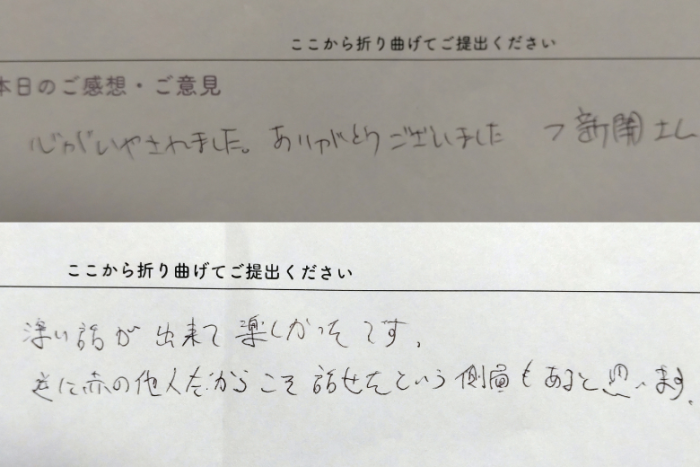 ここから折り曲げてご提出ください
本日のご感想・ご意見
心がいやされました。ありがとうございました
ここから折り曲げてご提出ください
深い話が出来て楽しかったです。
逆に赤の他人だからこそ話せたという側面もあると思います。